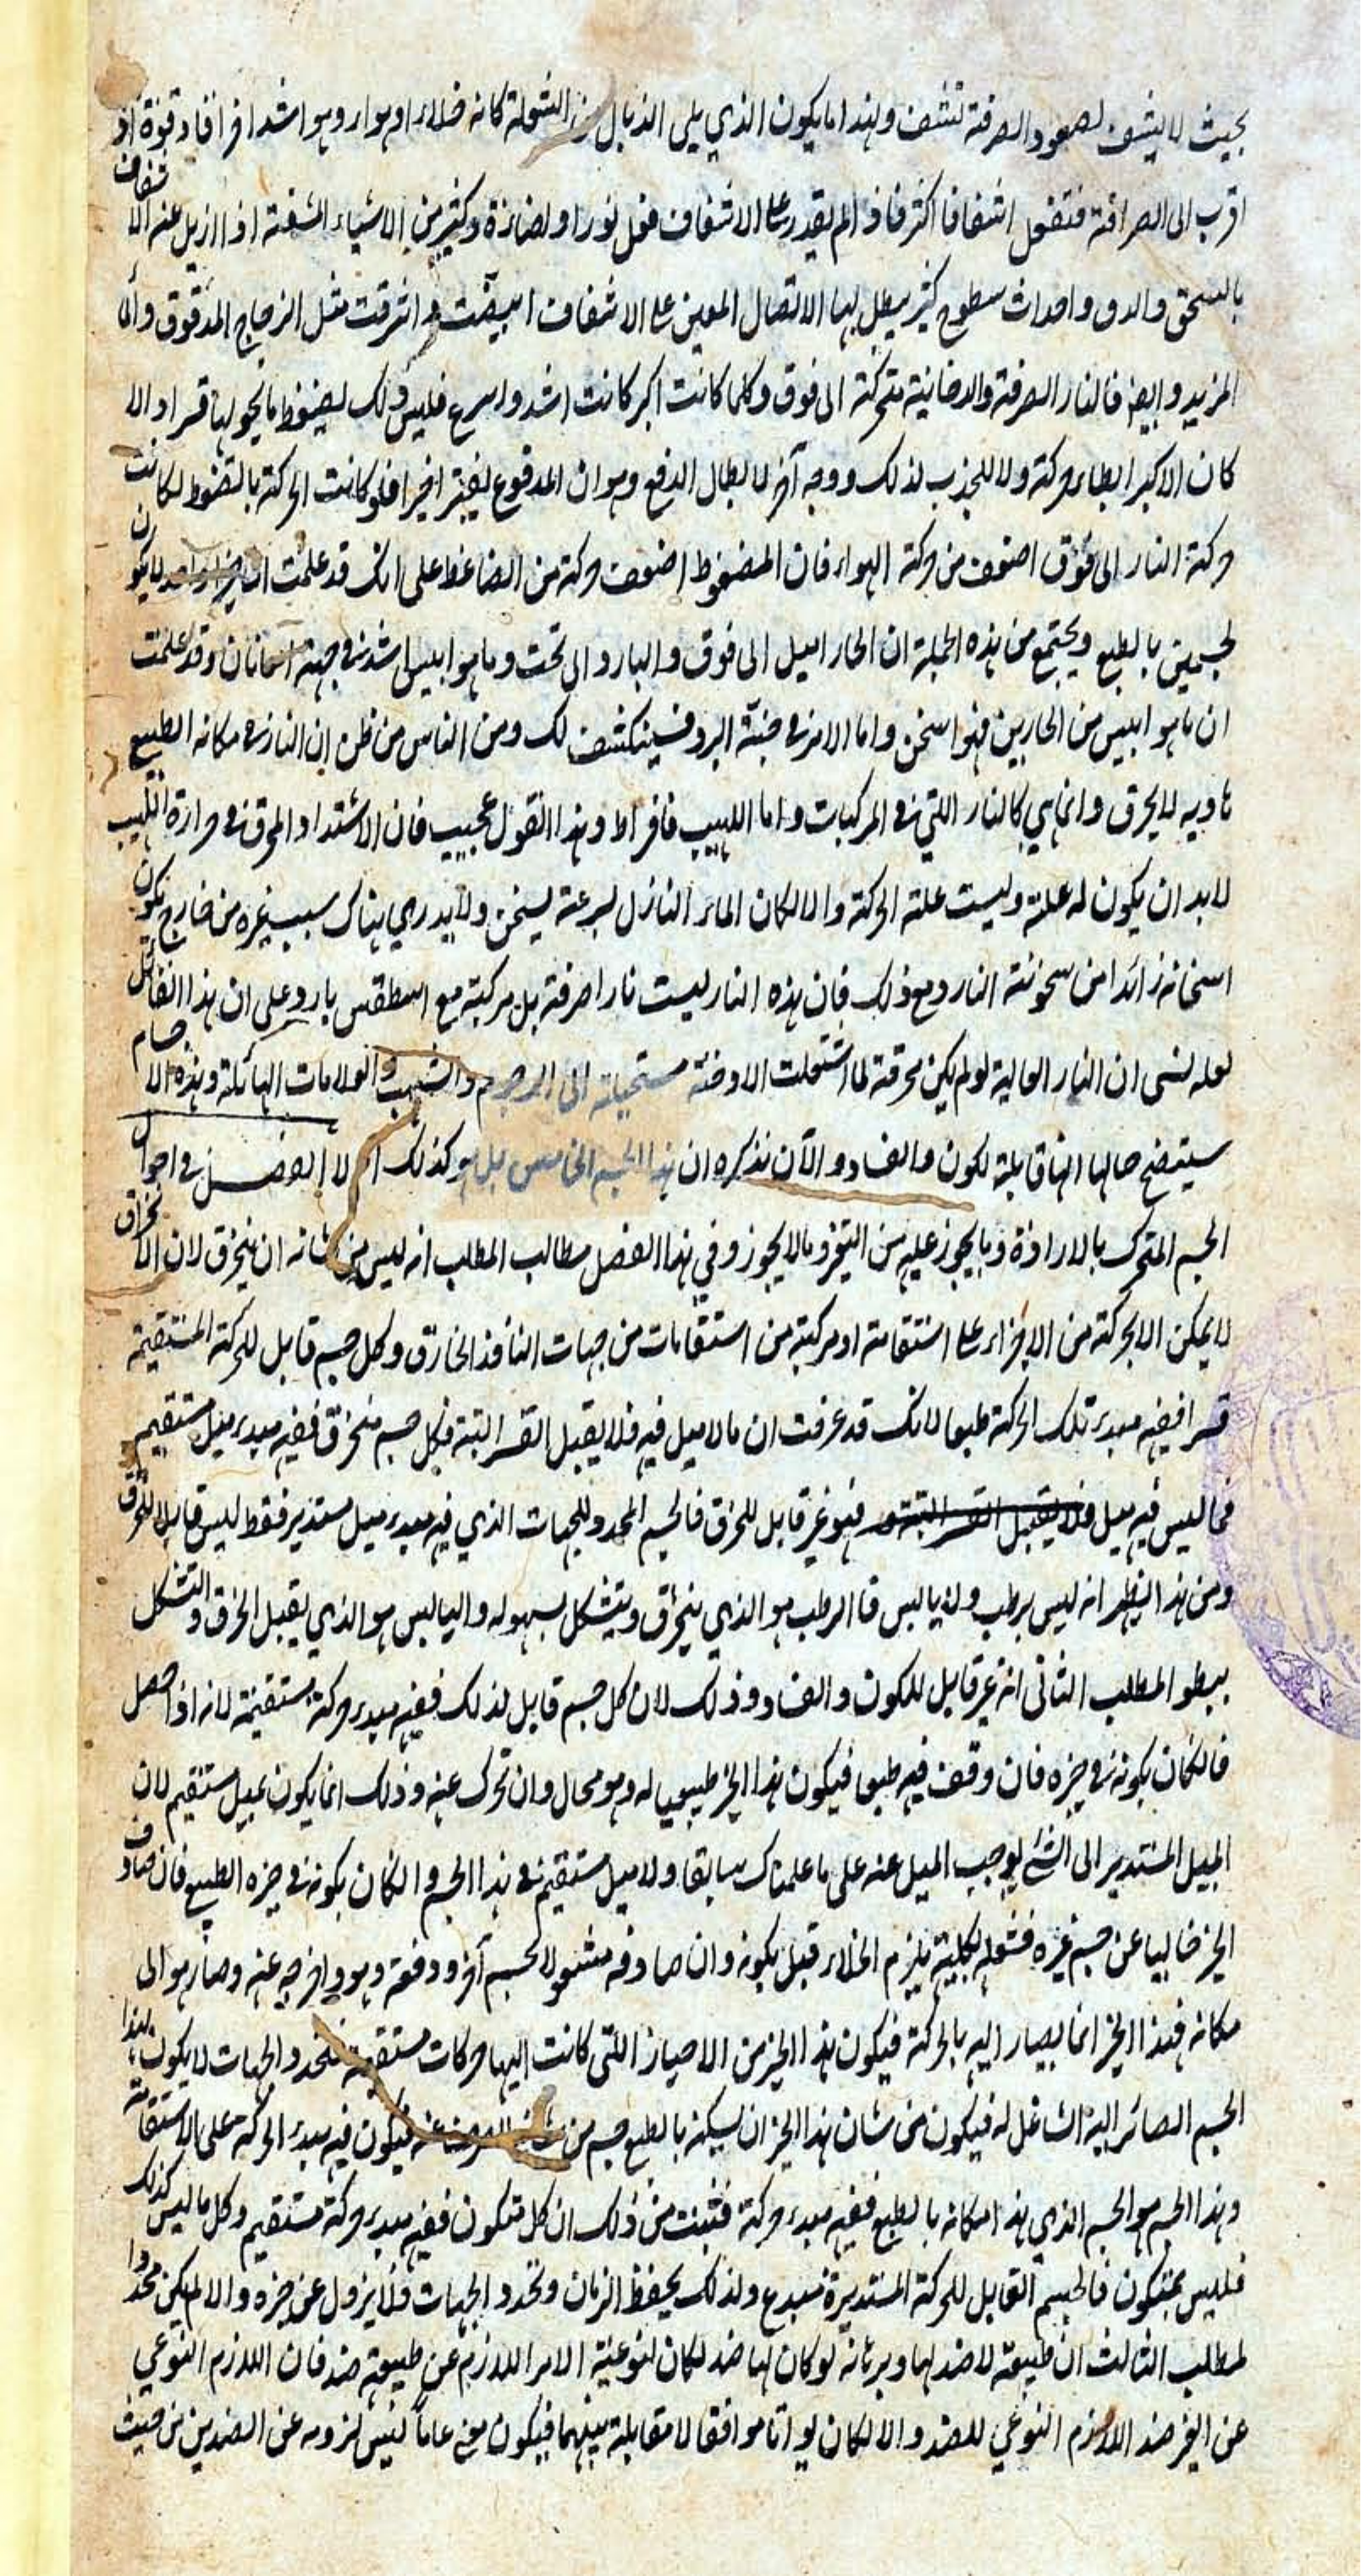 بحيث لا يشف لصعود الصرفة تشف ولهذا ما يكون الذي يلي الذبال من الشعلة كانه خلاء او هواء وهو اشد احراقا وقوة اذ
اقرب الى الصرافة فتفعل اشفافا اكثر فاذا لم يقدر على الاشفاف فعل نورا واضاءة وكثير من الاشياء المشفة اذا ازيل عنه الاشفاف
بالسحق والدق واحداث سطوح كثير يبطل بها الاتصال المعين على الاشفاف ابيضت واشرقت مثل الزجاج المدقوق والماء
المزبد وايضا فالنار الصرفة والدخانية متحركة الى فوق وكلما كانت اكبر كانت اشد واسرع فليس ذلك لضغط ما يحويها قسرا والا
كان الاكبر ابطاء حركة ولا للجذب لذلك ووجه آخر لابطال الدفع وهو ان المدفوع يفتر اخيرا فلو كانت الحركة بالضغط لكانت
حركة النار الى فوق اضعف من حركة الهواء فان المضغوط اضعف حركة من الضاغط على انك قد علمت ان لا يكون
لجسمين بالطبع ويجتمع من هذه الجملة ان الحار اميل الى فوق والبارد الى تحت وما هو ايبس اشد في جهة وقد علمت
ان ما هو ايبس من الحارين فهو اسخن واما الامر في جنبة البرد فسينكشف لك ومن الناس من ظن ان النار في مكانه الطبيعي
هادية لا يحرق وانما هي كالنار التي في المركبات واما اللهيب فافراط وهذا القول عجيب فان الاشتداد المحرق في حرارة اللهيب
لابد ان يكون له علة وليست علته الحركة والا لكان الماء النازل بسرعة يسخن ولا يدري هناك سبب غيره من خارج يكون
اسخانه زائدا من سخونة النار ومع ذلك فان هذه النار ليست نارا صرفة بل مركبة مع اسطقس بارد وعلى ان هذا القائل
لعله نسي ان النار العالية لو لم يكن محرقة لما اشتعلت الادخنة مستحيلة الى الرجوم والشهب والعلامات الهائلة وهذه الاجسام
سيتضح حالها انها قابلة لكون والفساد والآن نذكره ان هذا الجسم الخامس بل هو كذلك ام لا الفصل في احوال
الجسم المتحرك بالارادة وما يجوز عليه من التغير وما لا يجوز وفي هذا الفصل مطالب المطلب انه ليس من شانه ان ينخرق لان الانخراق
لا يمكن الا بحركة من الاجزاء على استقامة او مركبة من استقامات من جهات النافذ الخارق وكل جسم قابل للحركة المستقيمة
قسرا ففيه مبدء تلك الحركة طبعا لانك قد عرفت ان ما لا ميل فيه فلا يقبل القسر البتة فكل جسم منخرق ففيه مبدء ميل مستقيم
فما ليس فيه ميل فلا يقبل القسر البتة فهو غير قابل للخرق فالجسم المحدد للجهات الذي فيه مبدء ميل مستدير فقط ليس قابلا للخرق
ومن هذا يظهر انه ليس برطب ولا يابس فالرطب هو الذي ينخرق ويتشكل بسهوله واليابس هو الذي يقبل الخرق والتشكل
ببطو المطلب الثاني انه غير قابل للكون والفساد وذلك لان كل جسم قابل لذلك ففيه مبدء حركة مستقيمة لانه اذا حصل
فالكان بكونه في حيزه فان وقف فيه طبعا فيكون هذا الحيز طبيعيا له وهو محال وان تحرك عنه وذلك انما يكون بميل مستقيم لان
الميل المستدير الى الشئ لا يوجب الميل عنه على ما علمناك سابقا ولا ميل مستقيم في هذا الجسم والكان بكونه في حيزه الطبيعي فان صادف
الحيز خاليا عن جسم غيره فشغله بكليته يلزم الخلاء قبل بكونه وان صادفه مشغولا لجسم آخر ودفعه وهو واخرجه عنه وصار هو الى
مكانه فهذا الحيز انما يصار اليه بالحركة فيكون هذا الحيز من الاحياز التي كانت اليها حركات مستقيمة فتحدد الجهات لا يكون بهذا
الجسم الصائر اليه الشاغل له فيكون من شان هذا الحيز ان يسكنه بالطبع جسم من عنه فيكون فيه مبدء الحركة على الاستقامة
وهذا الجسم هو الجسم الذي هذا مكانه بالطبع ففيه مبدء حركة فثبت من ذلك ان كل متكون ففيه مبدء حركة مستقيم وكل ما ليس كذلك
فليس بمتكون فالجسم القابل للحركة المستديرة مبدع ولذلك يحفظ الزمان وتحدد الجهات فلا يزول عن حيزه والا لم يكن محددا
لمطلب الثالث ان طبيعته لا ضد لها وبرهانه لو كان لها ضد لكان لنوعية الامر اللازم عن طبيعته ضد فان اللازم النوعي
عن الغير ضد اللازم النوعي للضد والا لكان لو اتا موافقا لا مقابلة بينهما فيكون مع عاما ليس لزومه عن الضدين من حيث